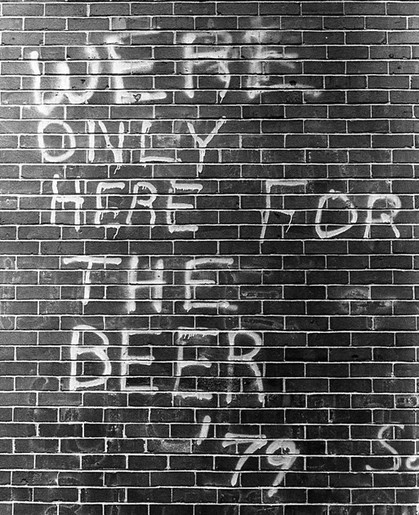 WERE
ONLY
HERE FOR
THE
BEER
'79